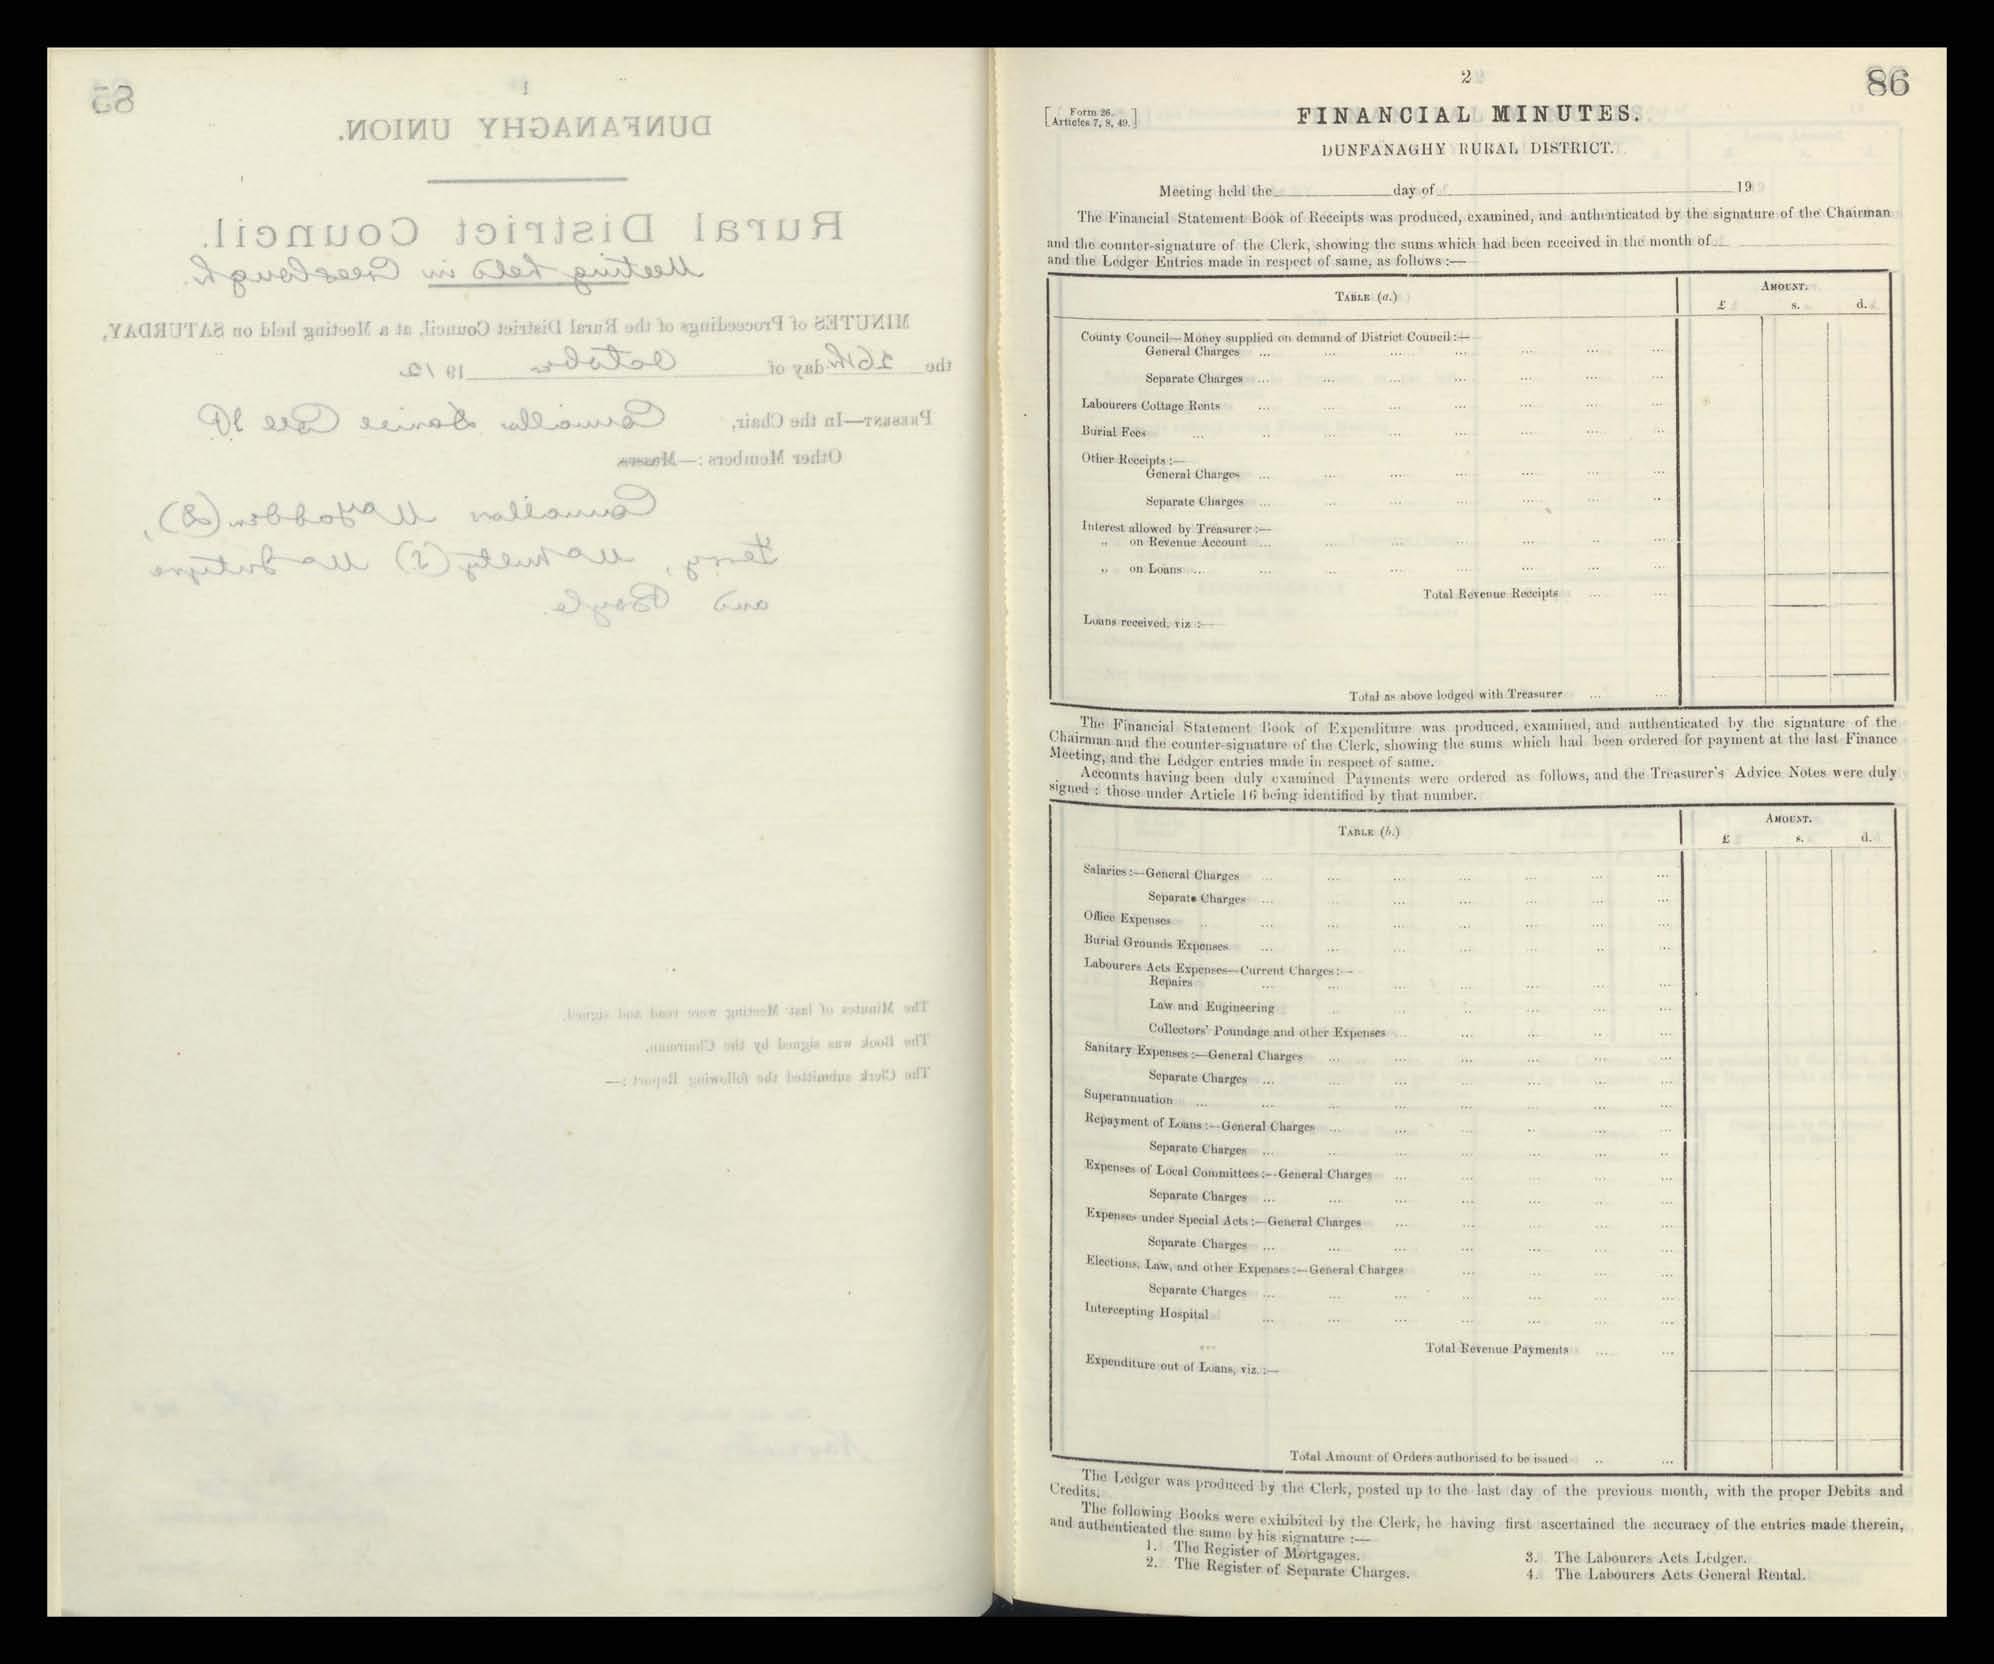 85
1
DUNFANAGHY UNION.
Rural District Council.
Meeting held in Creeslough.
MINUTES of Proceedings of the Rural District Council, at a Meeting held on SATURDAY,
the 26th day of October 1912
PRESENT—In the Chair, Councillor Daniel Coll JP
Other Members :—Messrs
Councillors McFadden (D),
Ferry, McNulty (J) McIntyre
and Boyle.
The Minutes of last Meeting were read and signed.
The Book was signed by the Chairman.
The Clerk submitted the following Report :—
2
86
[Form 26.
Articles 7, 8, 49.]
FINANCIAL MINUTES.
DUNFANAGHY RURAL DISTRICT.
Meeting held the day of 19
The Financial Statement Book of Receipts was produced, examined, and authenticated by the signature of the Chairman
and the counter-signature of the Clerk, showing the sums which had been received in the month of
and the Ledger Entries made in respect of same, as follows :—
TABLE (a.) AMOUNT.
£ s. d.
County Council—Money supplied on demand of District Council :—
General Charges ... ... ... ... ... ... ...
Separate Charges ... ... ... ... ... ... ...
Labourers Cottage Rents ... ... ... ... ... ... ...
Burial Fees ... ... ... ... ... ... ...
Other Receipts :—
General Charges ... ... ... ... ... ... ...
Separate Charges ... ... ... ... ... ... ...
Interest allowed by Treasurer :—
„ on Revenue Account ... ... ... ... ... ... ...
„ on Loans ... ... ... ... ... ... ... ...
Total Revenue Receipts ... ...
Loans received, viz :—
Total as above lodged with Treasurer ... ...
The Financial Statement Book of Expenditure was produced, examined, and authenticated by the signature of the
Chairman and the counter-signature of the Clerk, showing the sums which had been ordered for payment at the last Finance
Meeting, and the Ledger entries made in respect of same.
Accounts having been duly examined Payments were ordered as follows, and the Treasurer's Advice Notes were duly
signed : those under Article 16 being identified by that number.
TABLE (b.) AMOUNT.
£ s. d.
Salaries :—General Charges ... ... ... ... ... ... ...
Separate Charges ... ... ... ... ... ... ...
Office Expenses ... ... ... ... ... ... ... ...
Burial Grounds Expenses ... ... ... ... ... ... ...
Labourers Acts Expenses—Current Charges :—
Repairs ... ... ... ... ... ... ...
Law and Engineering ... ... ... ... ... ...
Collectors' Poundage and other Expenses ... ... ... ... ...
Sanitary Expenses :—General Charges ... ... ... ... ... ...
Separate Charges ... ... ... ... ... ... ...
Superannuation ... ... ... ... ... ... ... ...
Repayment of Loans :—General Charges ... ... ... ... ... ...
Separate Charges ... ... ... ... ... ... ...
Expenses of Local Committees :—General Charges ... ... ... ... ...
Separate Charges ... ... ... ... ... ... ...
Expenses under Special Acts :—General Charges ... ... ... ... ...
Separate Charges ... ... ... ... ... ... ...
Elections, Law, and other Expenses :—General Charges ... ... ... ...
Separate Charges ... ... ... ... ... ... ...
Intercepting Hospital ... ... ... ... ... ... ...
Total Revenue Payments ... ...
Expenditure out of Loans, viz. :—
Total Amount of Orders authorised to be issued ... ...
The Ledger was produced by the Clerk, posted up to the last day of the previous month, with the proper Debits and
Credits.
The following Books were exhibited by the Clerk, he having first ascertained the accuracy of the entries made therein,
and authenticated the same by his signature :—
1. The Register of Mortgages.
2. The Register of Separate Charges.
3. The Labourers Acts Ledger.
4. The Labourers Acts General Rental.